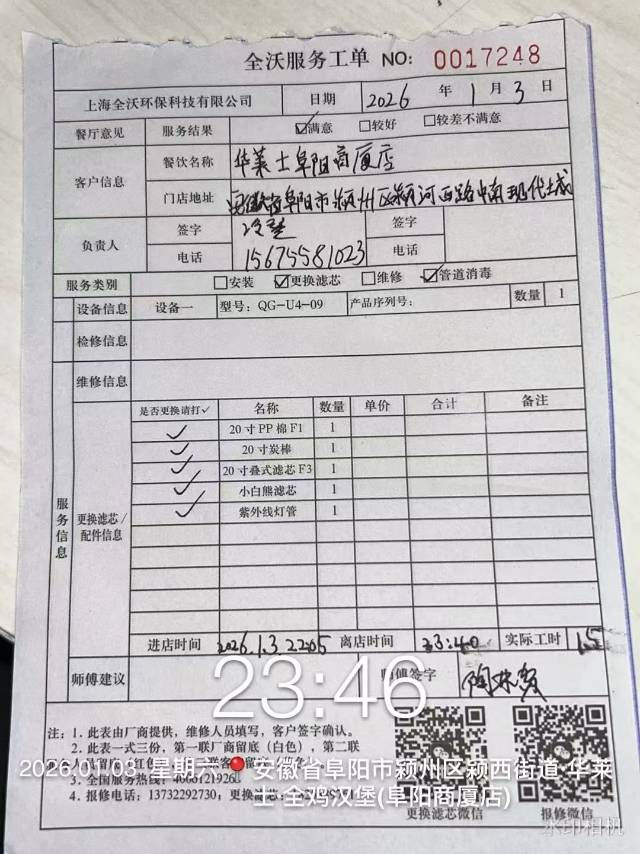 全沃服务工单 NO: 0017248
上海全沃环保科技有限公司 日期 2026 年 1 月 3 日
餐厅意见 服务结果 ☑满意 □较好 □较差不满意
客户信息 餐饮名称 华莱士阜阳商厦店
门店地址 安徽省阜阳市颍州区颍河西路中南现代城
负责人 签字 签字
电话 15675581023 电话
服务类别 □安装 ☑更换滤芯 □维修 ☑管道消毒
设备信息 设备一 型号: QG-U4-09 产品序列号: 数量 1
检修信息
维修信息
服务信息 更换滤芯/配件信息
是否更换请打✓ 名称 数量 单价 合计 备注
✓ 20寸PP棉F1 1
✓ 20寸炭棒 1
✓ 20寸叠式滤芯F3 1
✓ 小白熊滤芯 1
✓ 紫外线灯管 1
进店时间 2026.1.3 22:05 离店时间 23:40 实际工时 1.5
师傅建议 师傅签字
23:46
注: 1. 此表由厂商提供，维修人员填写，客户签字确认。
2. 此表一式三份，第一联厂商留底（白色），第二联
3. 全国服务热线: 4006121926
4. 报修电话: 13732292730, 更换滤芯:
更换滤芯微信 报修微信
2026.01.03 星期六 安徽省阜阳市颍州区颍西街道·华莱
士·全鸡汉堡(阜阳商厦店)
水印相机